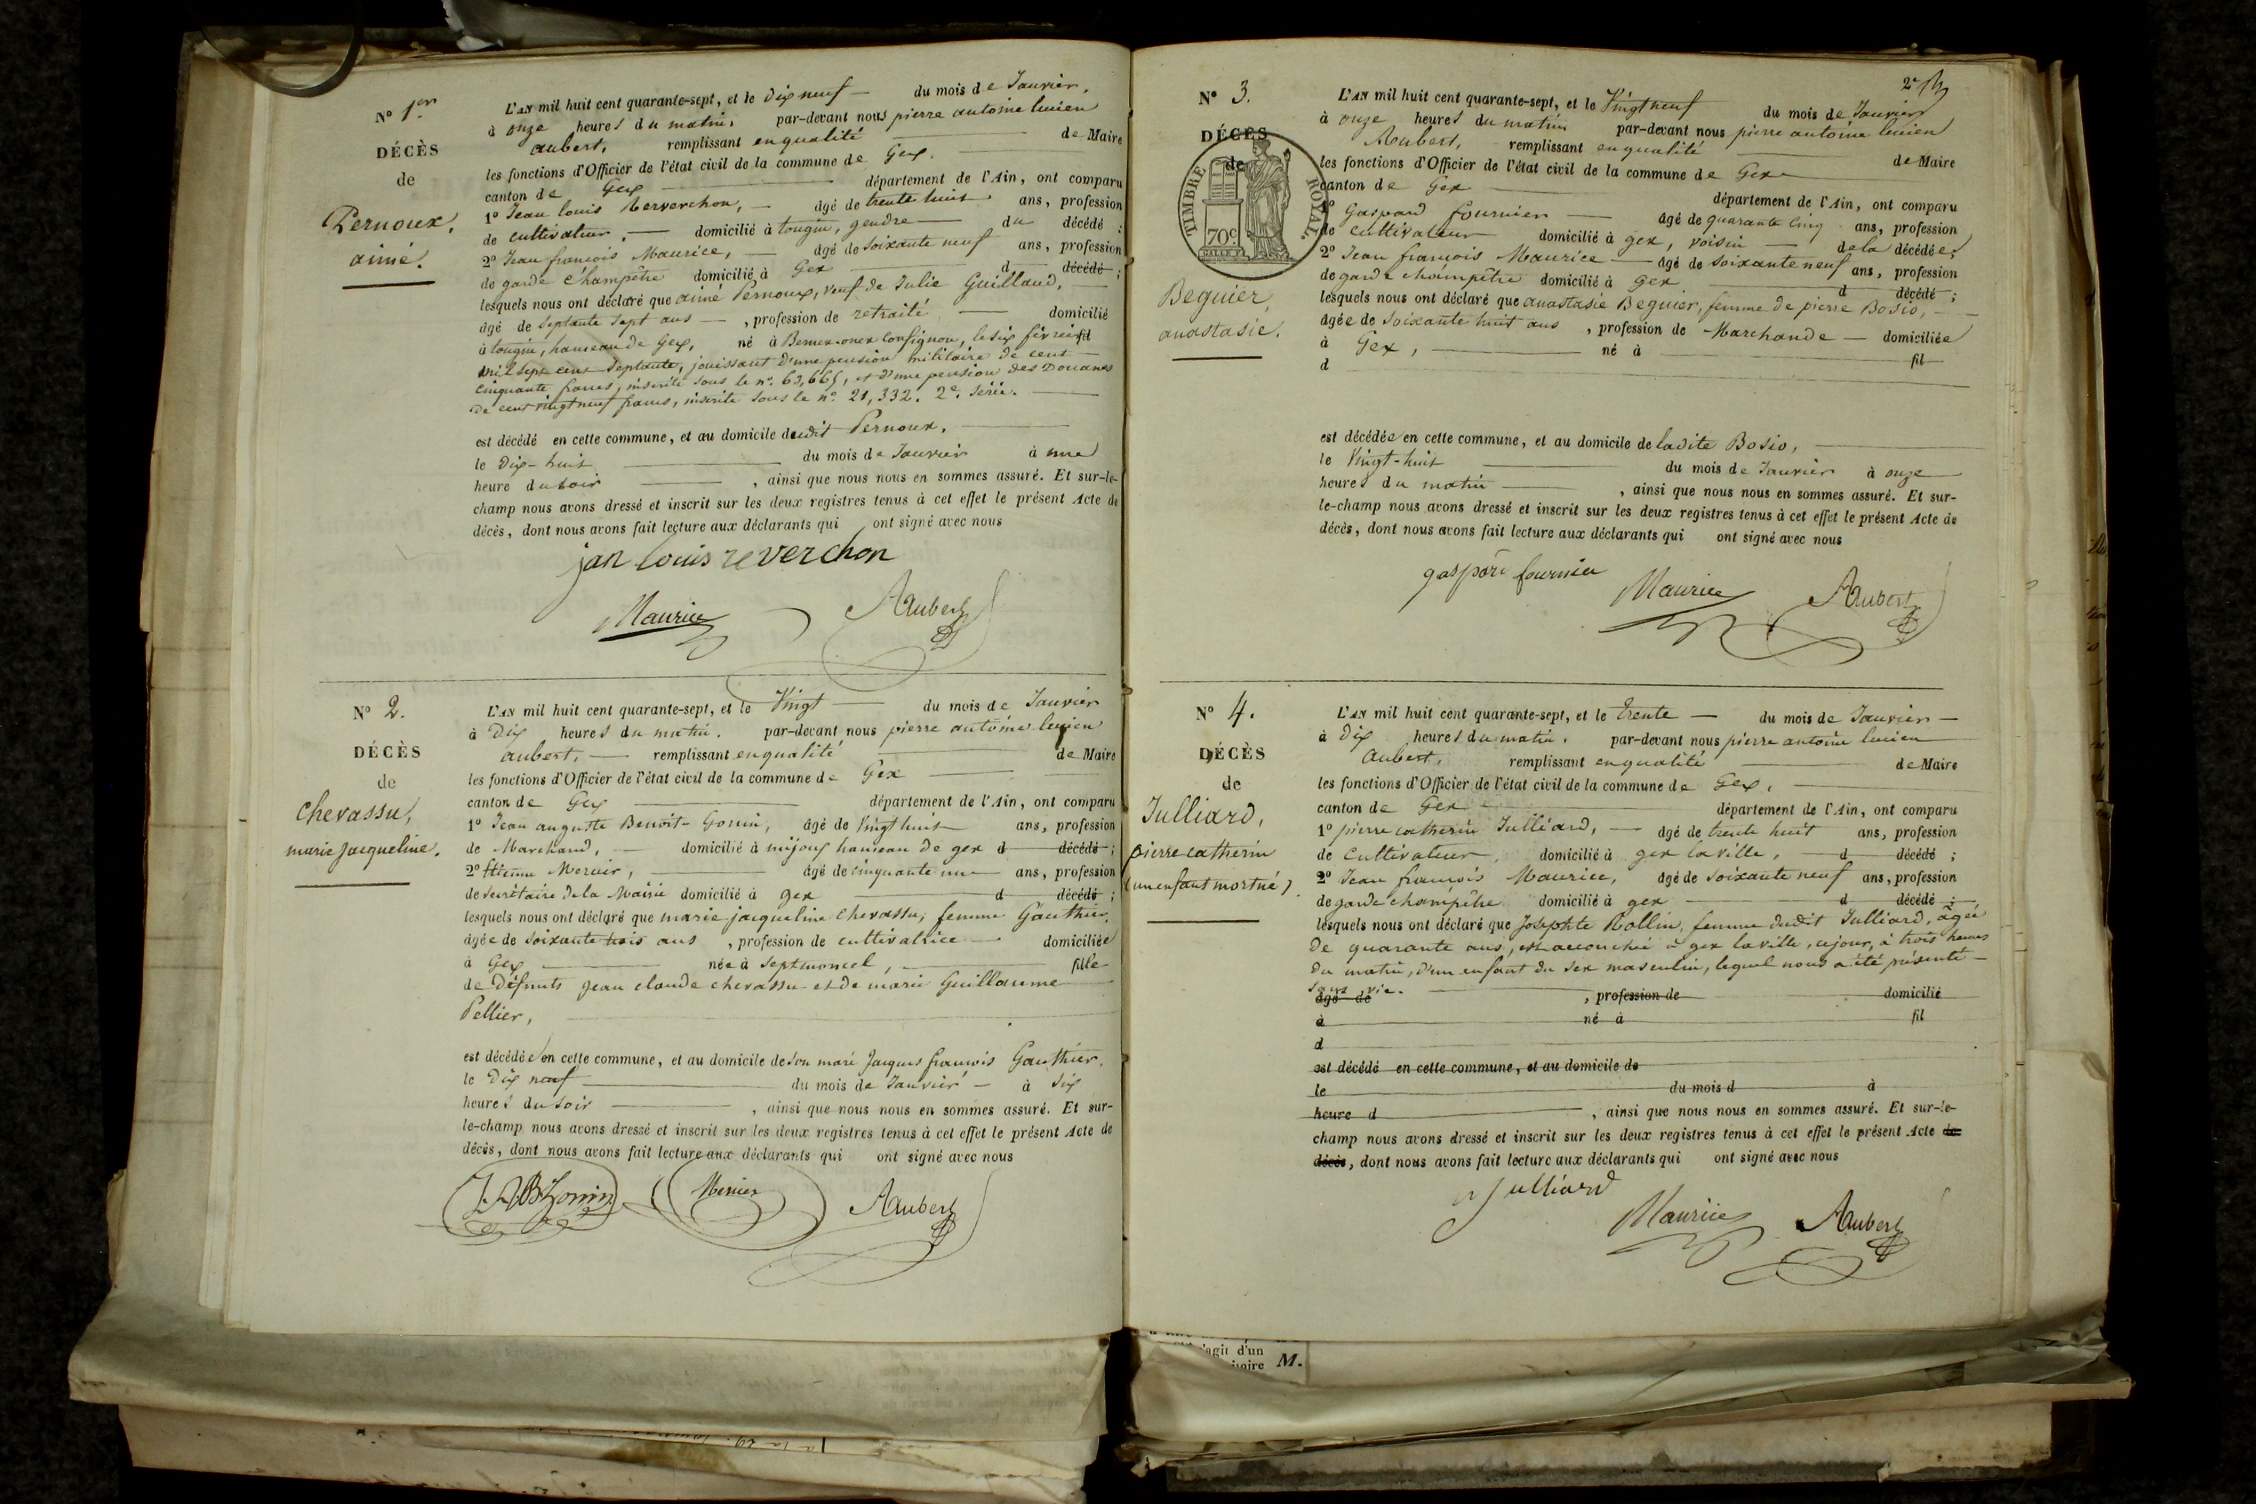 N° 1er
DÉCÈS
de
Pernoux,
aimé.
L'AN mil huit cent quarante-sept, et le dix neuf du mois de Janvier,
à onze heures du matin, par-devant nous pierre antoine lucien
aubert, remplissant en qualité de Maire
les fonctions d'Officier de l'état civil de la commune de Gex,
canton de Gex département de l'Ain, ont comparu
1° Jean louis Reverchon, âgé de trente huit ans, profession
de cultivateur, domicilié à tougin, gendre du décédé ;
2° Jean françois Maurice, âgé de soixante neuf ans, profession
de garde champêtre domicilié à Gex d décédé ;
lesquels nous ont déclaré que aimé Pernoux, veuf de Julie Guilland,
âgé de septante sept ans, profession de retraité domicilié
à tougin, hameau de Gex, né à Confignon, le six février fil
mil sept cent septante, jouissant d'une pension militaire de cent
cinquante francs, inscrite sous le n°. 63,665, et d'une pension des Douanes
de cent vingt neuf francs, inscrite sous le n°. 21,332. 2e. série.
est décédé en cette commune, et au domicile dudit Pernoux,
le dix-huit du mois de Janvier à une
heure du soir, ainsi que nous nous en sommes assuré. Et sur-le-
champ nous avons dressé et inscrit sur les deux registres tenus à cet effet le présent Acte de
décès, dont nous avons fait lecture aux déclarants qui ont signé avec nous
jan louis reverchon
Maurice Aubert
N° 2.
DÉCÈS
de
Chevassu,
marie jacqueline.
L'AN mil huit cent quarante-sept, et le Vingt du mois de Janvier
à Dix heures du matin. par-devant nous pierre antoine lucien
aubert, remplissant en qualité de Maire
les fonctions d'Officier de l'état civil de la commune de Gex
canton de Gex département de l'Ain, ont comparu
1° Jean auguste Benoit-Gonin, âgé de Vingt huit ans, profession
de Marchand, domicilié à mijoux hameau de gex d décédé ;
2° Etienne Mercier, âgé de cinquante un ans, profession
de secrétaire de la Mairie domicilié à gex d décédé ;
lesquels nous ont déclaré que marie jacqueline chevassu, femme Gauthier,
âgée de soixante trois ans, profession de cultivatrice domiciliée
à Gex née à septmoncel, fille
de Défunts jean claude chevassu et de marie Guillaume
Pellier,
est décédée en cette commune, et au domicile de son mari Jacques françois Gauthier,
le Dix neuf du mois de Janvier à six
heures du soir, ainsi que nous nous en sommes assuré. Et sur-
le-champ nous avons dressé et inscrit sur les deux registres tenus à cet effet le présent Acte de
décès, dont nous avons fait lecture aux déclarants qui ont signé avec nous
J.A.B Gonin Mercier Aubert
2e
N° 3.
DÉCÈS
de
TIMBRE ROYAL.
70c
Beguier,
anastasie.
L'AN mil huit cent quarante-sept, et le Vingt neuf du mois de Janvier
à onze heures du matin par-devant nous pierre antoine lucien
Aubert, remplissant en qualité de Maire
les fonctions d'Officier de l'état civil de la commune de Gex
canton de Gex département de l'Ain, ont comparu
1° Gaspard fournier âgé de quarante cinq ans, profession
de cultivateur domicilié à gex, voisin de la décédée ;
2° Jean françois Maurice âgé de soixante neuf ans, profession
de garde champêtre domicilié à gex d décédé ;
lesquels nous ont déclaré que anastasie Beguier, femme de pierre Bosio,
âgée de soixante huit ans, profession de Marchande domiciliée
à Gex, né à fil
d
est décédée en cette commune, et au domicile de ladite Bosio,
le Vingt-huit du mois de Janvier à onze
heures du matin, ainsi que nous nous en sommes assuré. Et sur-
le-champ nous avons dressé et inscrit sur les deux registres tenus à cet effet le présent Acte de
décès, dont nous avons fait lecture aux déclarants qui ont signé avec nous
gaspar fournier Maurice Aubert
N° 4.
DÉCÈS
de
Julliard,
pierre catherin
(un enfant mort né).
L'AN mil huit cent quarante-sept, et le Trente du mois de Janvier
à dix heures du matin. par-devant nous pierre antoine lucien
Aubert, remplissant en qualité de Maire
les fonctions d'Officier de l'état civil de la commune de Gex,
canton de Gex département de l'Ain, ont comparu
1° pierre catherin Julliard, âgé de trente huit ans, profession
de cultivateur, domicilié à gex la ville, d décédé ;
2° Jean françois Maurice, âgé de soixante neuf ans, profession
de garde champêtre domicilié à gex d décédé ;
lesquels nous ont déclaré que Josephte Rollin, femme dudit Julliard, âgée
de quarante ans, est accouchée à gex la ville, ce jour, à trois heures
du matin, d'un enfant du sex masculin, lequel nous a été présenté
sans vie.
âgé de, profession de domicilié
à né à fil
d
est décédé en cette commune, et au domicile de
le du mois d à
heure d, ainsi que nous nous en sommes assuré. Et sur-le-
champ nous avons dressé et inscrit sur les deux registres tenus à cet effet le présent Acte de
décès, dont nous avons fait lecture aux déclarants qui ont signé avec nous
Julliard
Maurice Aubert
s'agit d'un
M.